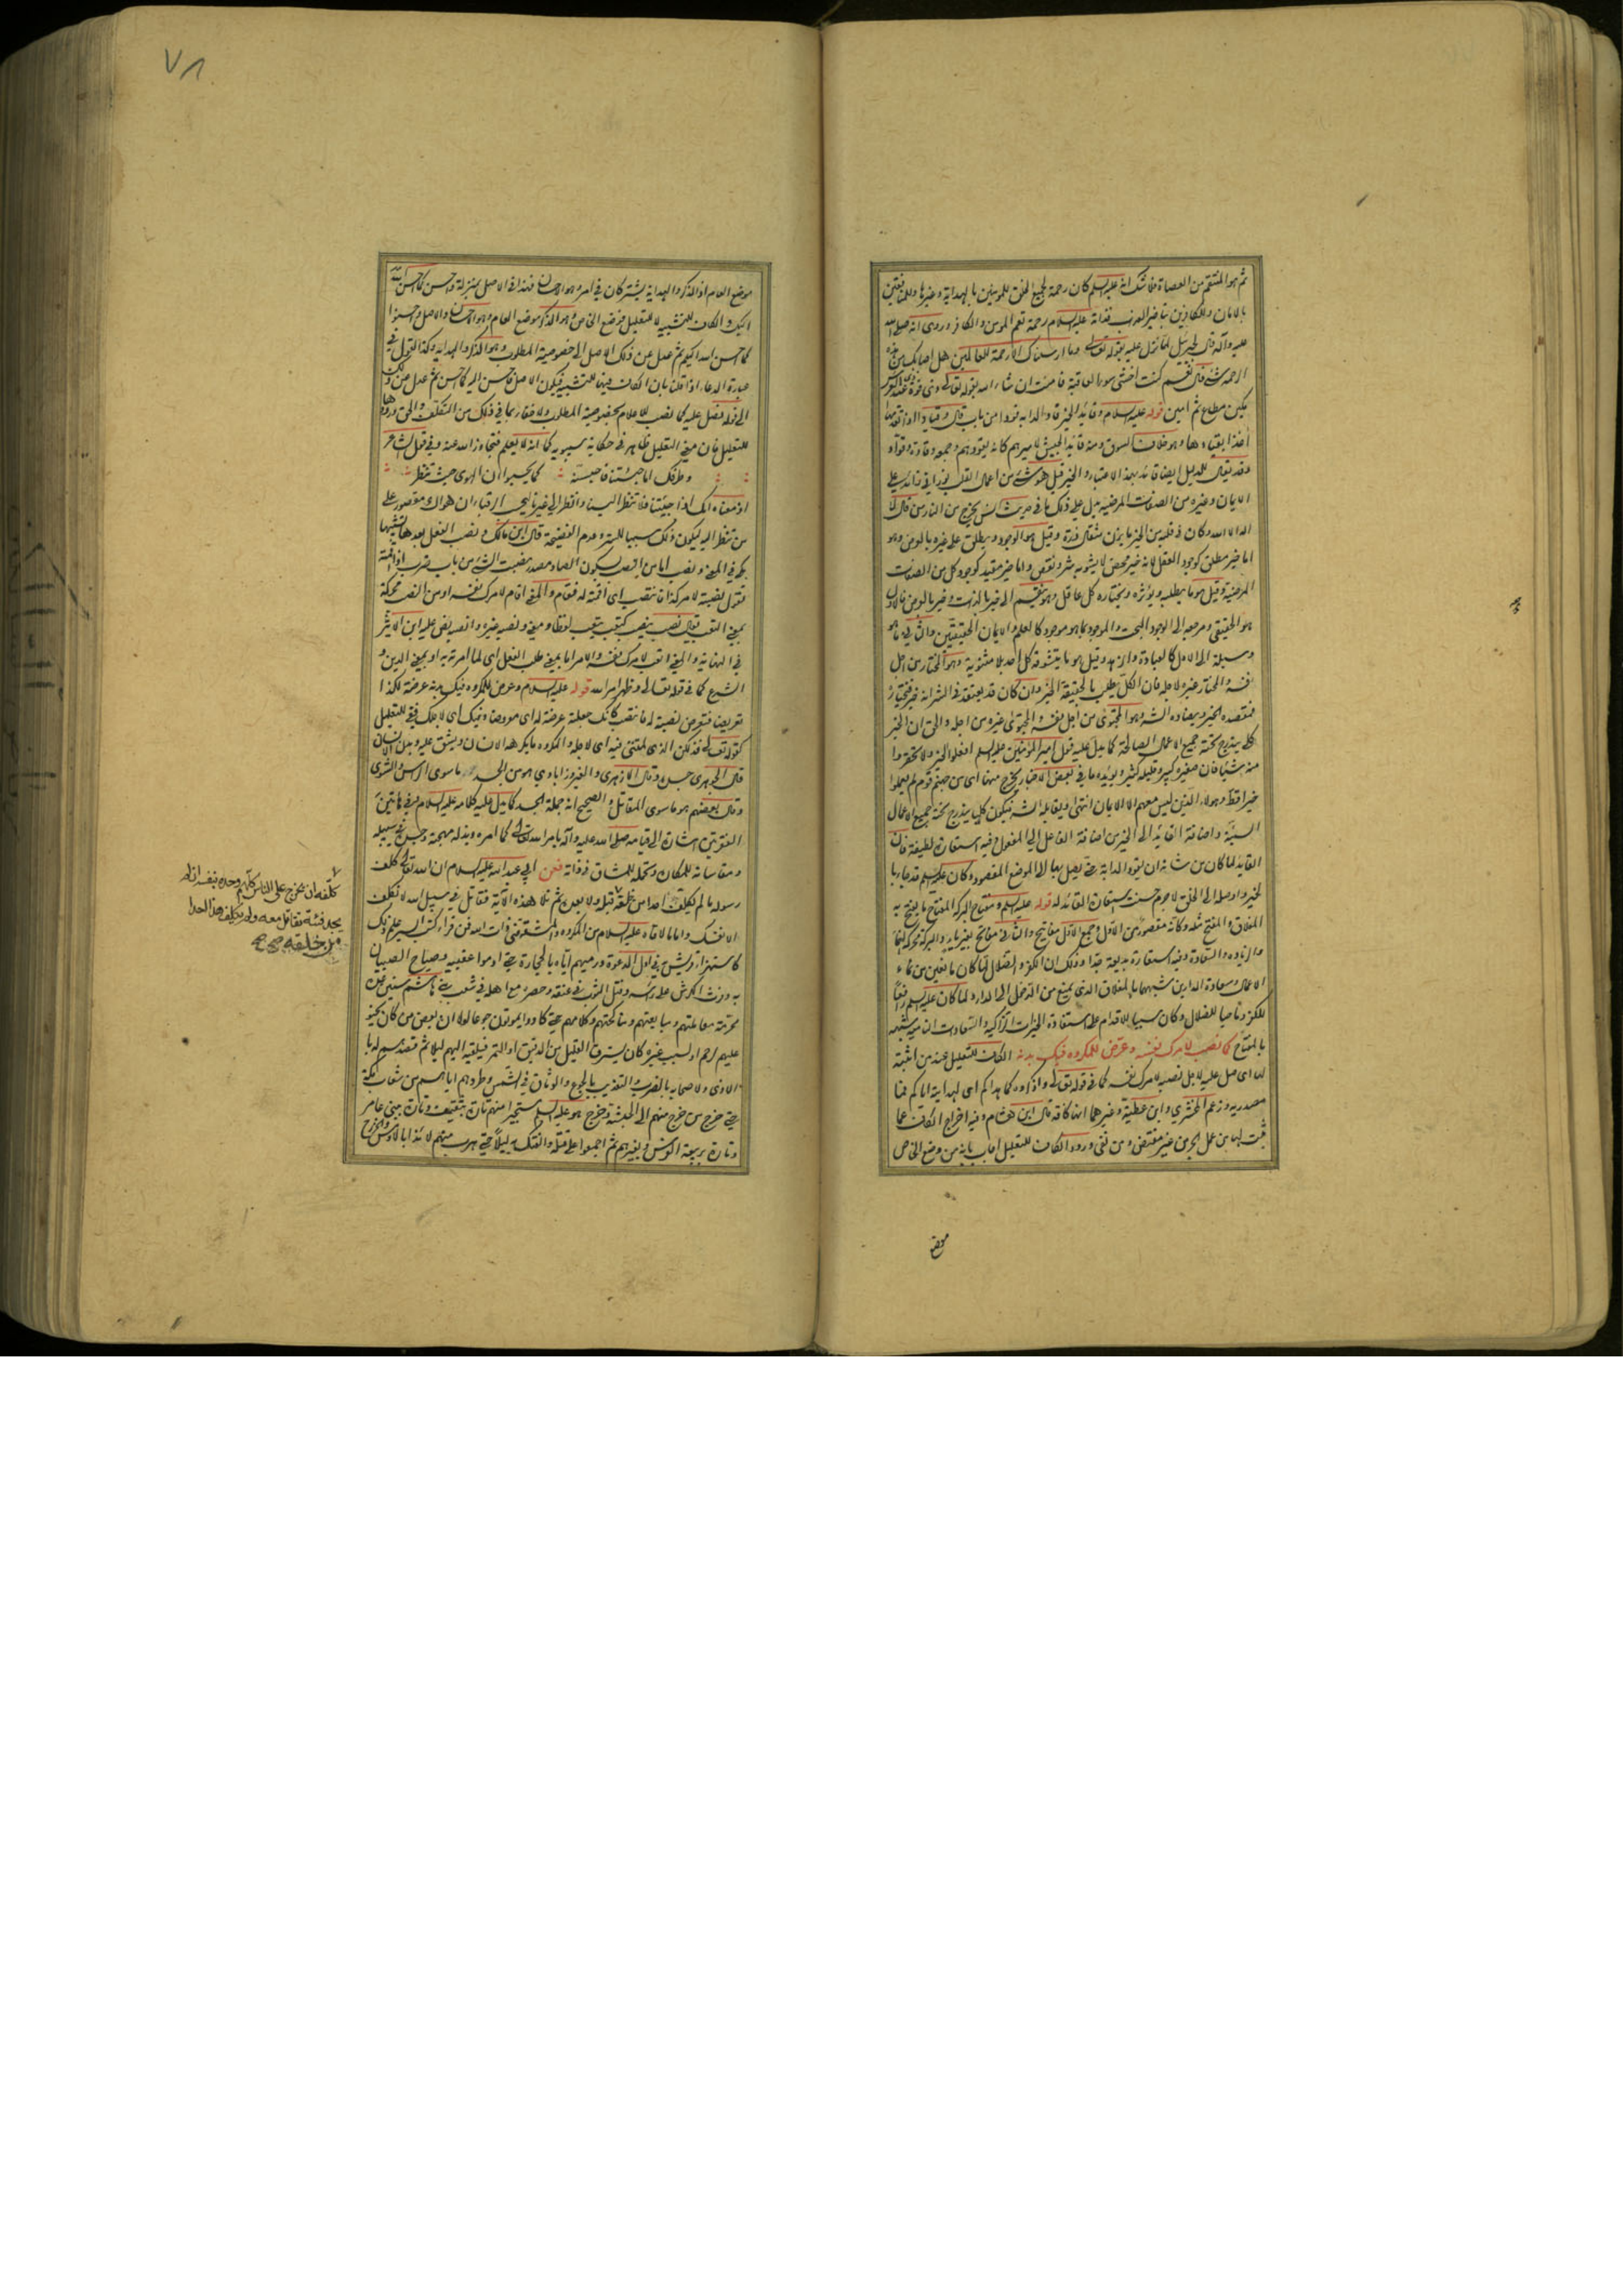 ثم هو المنتقم من العصاة فلا شك انه عليه السلم كان رحمة لجميع الخلق للمؤمنين بالهداية وغيرها وللمنافقين
بالامان وللكافرين بتاخير العذاب فذاته عليه السلام رحمة تعم المومن والكافر وروى انه صلى الله
عليه وآله قال لجبرئيل لما نزل عليه بقوله تعالى وما ارسلناك الا رحمة للعالمين هل اصابك من هذه
الرحمة شئ قال نعم كنت اخشى سوء العاقبة فامنت ان شاء الله بقوله تعالى ذى قوة عند ذى العرش
مكين مطاع ثم امين قوله عليه السلام وقائد الخير قاد الدابة قودا من باب قال وقيادا
وقد يقال للدليل ايضا قائد بهذا الاعتبار والخير قيل هو شئ من اعمال القلب نورانى زائد على
الايمان وغيره من الصفات المرضية يدل على ذلك ما فى حديث انس يخرج من النار من قال لا
اله الا الله وكان فى قلبه من الخير ما يزن مثقال ذرة وقيل هو الوجود ويطلق على غيره بالعرض وهو
اما خير مطلق كوجود العقل لانه خير محض لا يشوبه شر ونقص واما خير مقيد كوجود كل من الصفات
المرضية وقيل هو ما يطلبه ويؤثره ويختاره كل عاقل وهو ينقسم الى خير بالذات وخير بالعرض فالاول
هو الحقيقى ومرجعه الى الوجود البحت والموجود بما هو موجود كالعلم والايمان الحقيقيين والثانى ما هو
وسيلة الى الاول كالعبادة والزهد وقيل هو ما يتشوقه كل احد بلا مثنوية وهو المختار من اجل
نفسه والمختار غيره لاجله فان الكل يطلب بالحقيقة الخير وان كان قد يعتقد فى الشر انه خير فيختاره
فمقصده الخير ويضاده الشر وهو المجتوى من اجل نفسه والمجتوى غيره من اجله والحق ان الخير
كلى يندرج تحته جميع الاعمال الصالحة كما يدل عليه قول امير المؤمنين عليه السلم افعلوا الخير ولا تحقروا
منه شيئا فان صغيره كبير وقليله كثير ويؤيده ما فى بعض الاخبار يخرج منها اى من جهنم قوم لم يعملوا
خيرا قط وهؤلاء الذين ليس معهم الا الايمان انتهى ويقابله الشر فيكون كليا يندرج تحته جميع الاعمال
السيئة واضافة القائد الى الخير من اضافة الفاعل الى المفعول وفيه استعارة لطيفة فان
القايد لما كان من شانه ان يقود الدابة حتى يصل بها الى الموضع المقصود وكان عليه السلم قد جاء بالخير
واوصله الى الخلق لا جرم حسنت استعارة القائد له قوله عليه السلم ومفتاح البركة المفتاح ما يفتح به
المغلاق والمفتح مثله وكانه مقصور من الاول وجمع الاول مفاتيح والثانى مفاتح بغير ياء والبركة محركة النماء
والزيادة والسعادة وفيه استعارة بديعة جدا وذلك ان الكفر والضلال لما كان مانعين من نماء
الاعمال وسعادة الدارين شبههما بالمغلاق الذى يمنع من الدخول الى الدار ولما كان عليه السلم رافعا
للكفر وناحيا للضلال وكان سببا للاقدام على استفادة الخيرات الزاكية والسعادات النامية شبهه
بالمفتاح كما نصب لامرك نفسه وعرض للمكروه فيك بدنه الكاف للتعليل عند من اثبته
لها اى صل عليه لاجل نصبه لامرك نفسه كما فى قوله تعالى واذكروه كما هداكم اى لهدايته اياكم فما
مصدرية وزعم الزمخشرى وابن عطية وغيرهما انها كافة قال ابن هشام وفيه اخراج الكاف عما
ثبت لها من عمل الجر من غير مقتض ومن نفى ورود الكاف للتعليل اجاب بانه من وضع الخاص
موضع
٧٨
موضع العام اذ الذكر والهداية يشتركان فى امر وهو الاحسان فهذا فى الاصل بمنزلة واحسن كما احسن الله
اليك والكاف للتشبيه لا للتعليل فوضع الخاص وهو الذكر موضع العام وهو الاحسان والاصل واحسنوا
كما احسن الله اليكم ثم عدل عن ذلك الاصل الى خصوصية المطلوب وهو الذكر والهداية وكذا القول فى
عبارة الدعاء اذا قلنا بان الكاف فيها للتشبيه فيكون الاصل فاحسن اليه كما احسن ثم عدل عن ذلك
الى قوله فصل عليه كما نصب للاعلام بخصوصية المطلوب ولا خفاء بما فى ذلك من التكلف والحق ورودها
للتعليل فان معنى التعليل ظاهر فى حكاية سيبويه كما انه لا يعلم فتجاوز الله عنه وفى قول الشاعر
وطرفك اما جئتنا فاحبسنه كما يحسبوا ان الهوى حيث تنظر
اذ معناه انك اذا جئتنا فلا تنظر الينا وانظر الى غيرنا ليحسب الرقباء ان هواك مقصور على
من تنظر اليه ليكون ذلك سببا للستر وعدم الفضيحة قال ابن مالك ونصب الفعل بعدها تشبيها
بكى فى المعنى ونصب اما من النصب بسكون الصاد مصدر نصبت الشئ من باب ضرب اذا اقمته
تقول نصبته لامر كذا فانتصب اى اقمته له فقام والمعنى اقام لامرك نفسه او من النصب محركة
بمعنى التعب يقال نصب ينصب كتعب يتعب لفظا ومعنى ونصبه غيره وانصبه نص عليه ابن الاثير
فى النهاية والمعنى اتعب لامرك نفسه والامر اما بمعنى طلب الفعل اى لما امرته به او بمعنى الدين و
الشرع كما فى قوله تعالى وظهر امر الله قوله عليه السلام وعرض للمكروه فيك بدنه عرضته لكذا
تعريضا فتعرض نصبته له فانتصب كانك جعلته عرضة له اى معروضا وفيك اى لاجلك ففى للتعليل
كقوله تعالى فذلكن الذى لمتننى فيه اى لاجله والمكروه ما يكرهه الانسان ويشق عليه وبدن الانسان
قال الجوهرى جسده وقال الازهرى والفيروزابادى هو من الجسد ما سوى الراس والشوى
وقال بعضهم هو ما سوى المقاتل والصحيح انه جملة الجسد كما يدل عليه كلامه عليه السلام وفى هاتين
الفقرتين اشارة الى قيامه صلى الله عليه وآله بامر الله تعالى كما امره وبذله مهجته وجسده فى سبيله
ومقاساته للمكاره وتحمله للمشاق فى ذاته فعن ابى عبد الله عليه السلام ان الله تعالى كلف
رسوله ما لم يكلف احدا من خلقه قبله ولا بعده ثم تلا هذه الآية فقاتل فى سبيل الله لا تكلف
الا نفسك واما ما لاقاه عليه السلام من المكروه والمشقة فى ذات الله فمن قرأ كتب السير علم ذلك
كاستهزاء قريش به فى اول الدعوة ورميهم اياه بالحجارة حتى ادموا عقبيه وصياح الصبيان
به وفرث الكرش على رأسه وفتل الثوب فى عنقه وحصره مع اهله فى شعب بنى هاشم سنين عدة
محرمة معاملتهم ومبايعتهم ومناكحتهم وكلامهم حتى كادوا يموتون جوعا لولا ان بعض من كان يحنو
عليهم لرحم او لسبب غيره كان يسترق القليل من الدقيق او التمر فيلقيه اليهم ليلا ثم قصدهم له
بالاذى ولاصحابه بالضرب والتعذيب بالجوع والوثاق فى الشمس وطردهم اياهم من شعاب مكة
حتى خرج من خرج منهم الى الحبشة وخرج هو عليه السلم مستجيرا منهم تارة بثقيف وتارة ببنى عامر
وتارة بربيعة الفرس وبغيرهم ثم اجمعوا على قتله والفتك به ليلا حتى هرب منهم لائذا بالاوس والخزرج
كلفه ان يخرج على الناس كلهم وحده بنفسه ان لم
يجد فئة تقاتل معه ولم يكلف هذا احدا
من خلقه صح